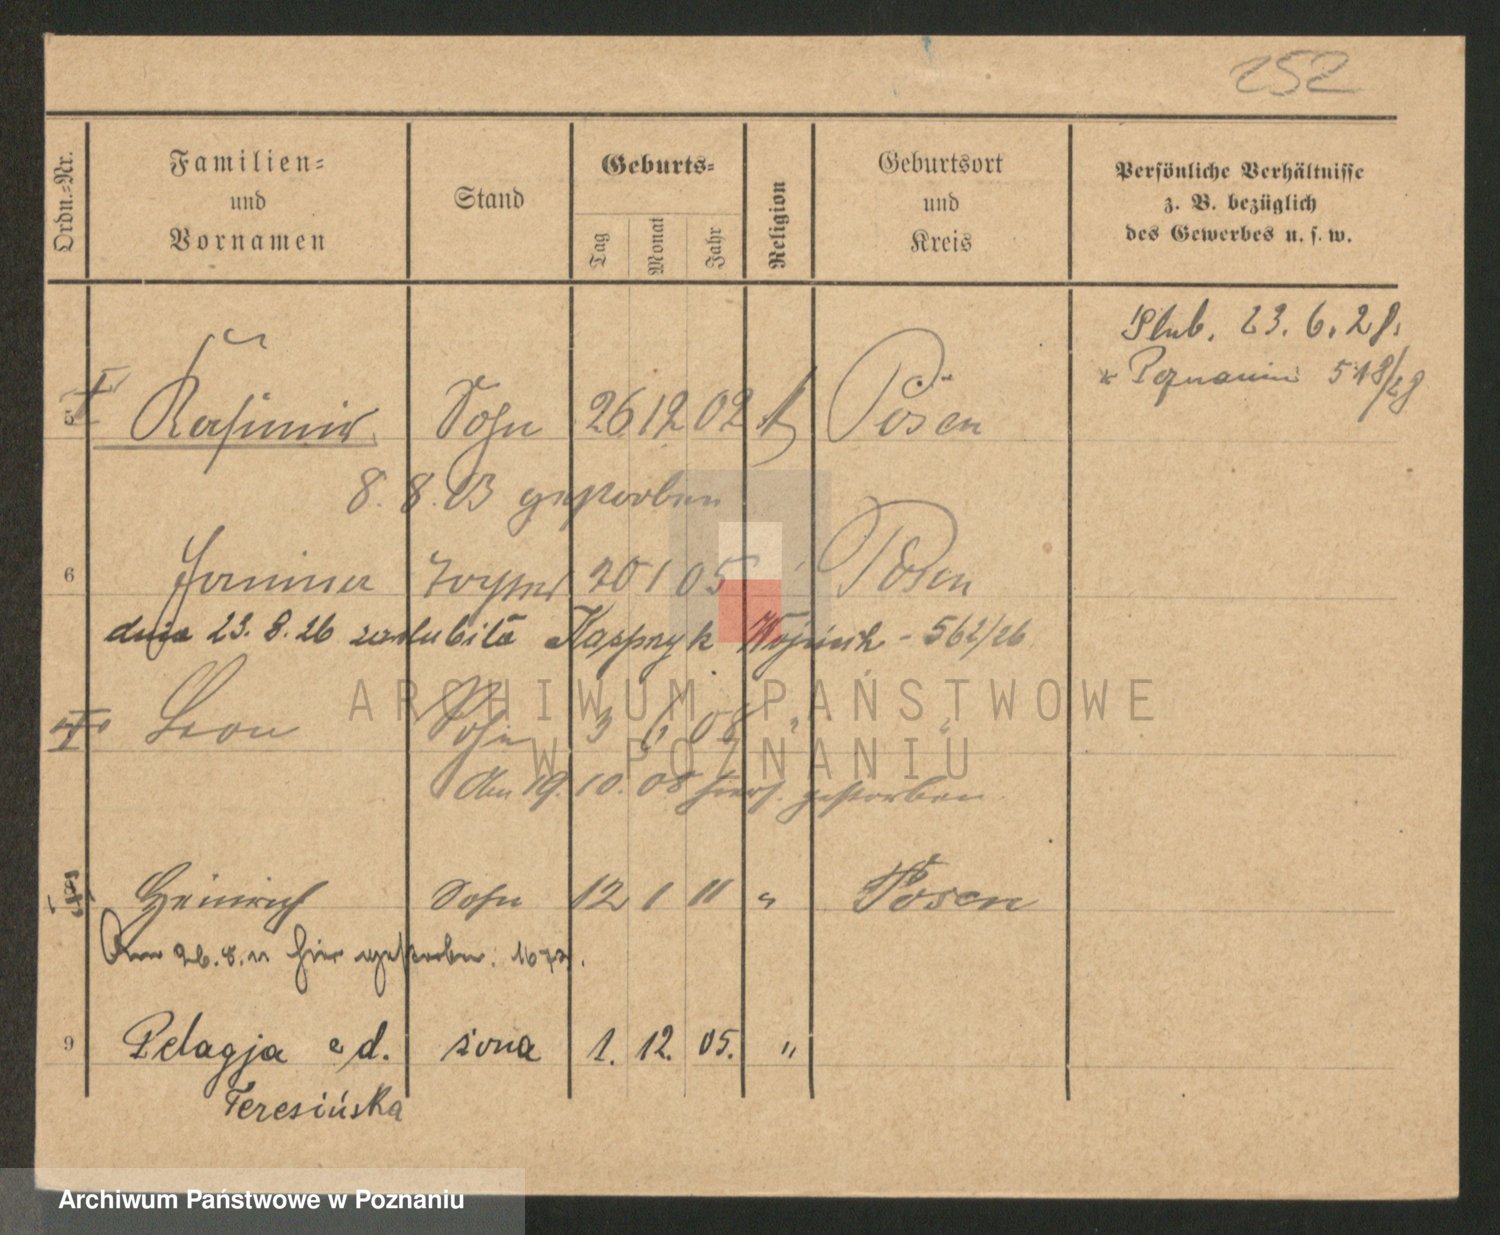 252
Ordn.-Nr.
Familien-
und
Vornamen
Stand
Geburts-
Tag
Monat
Jahr
Religion
Geburtsort
und
Kreis
Persönliche Verhältnisse
z. B. bezüglich
des Gewerbes u. s. w.
Ślub. 23. 6. 28.
Poznaniu 518/28
5 Kasimir Sohn 26 12 02 k Posen
8. 8. 03 gestorben
6 Janina Tochter 20 1 05 Posen
dnia 23. 8. 26 zaślubiła Kasprzyk - 562/26
Leon Sohn 3 6 08 " "
Am 19. 10. 08 hiers. gestorben
Heinrich Sohn 12 1 11 " Posen
Am 26. 8. 11 hier gestorben.
9 Pelagja z d. żona 1. 12. 05. "
Teresińska
ARCHIWUM PAŃSTWOWE
W POZNANIU
Archiwum Państwowe w Poznaniu